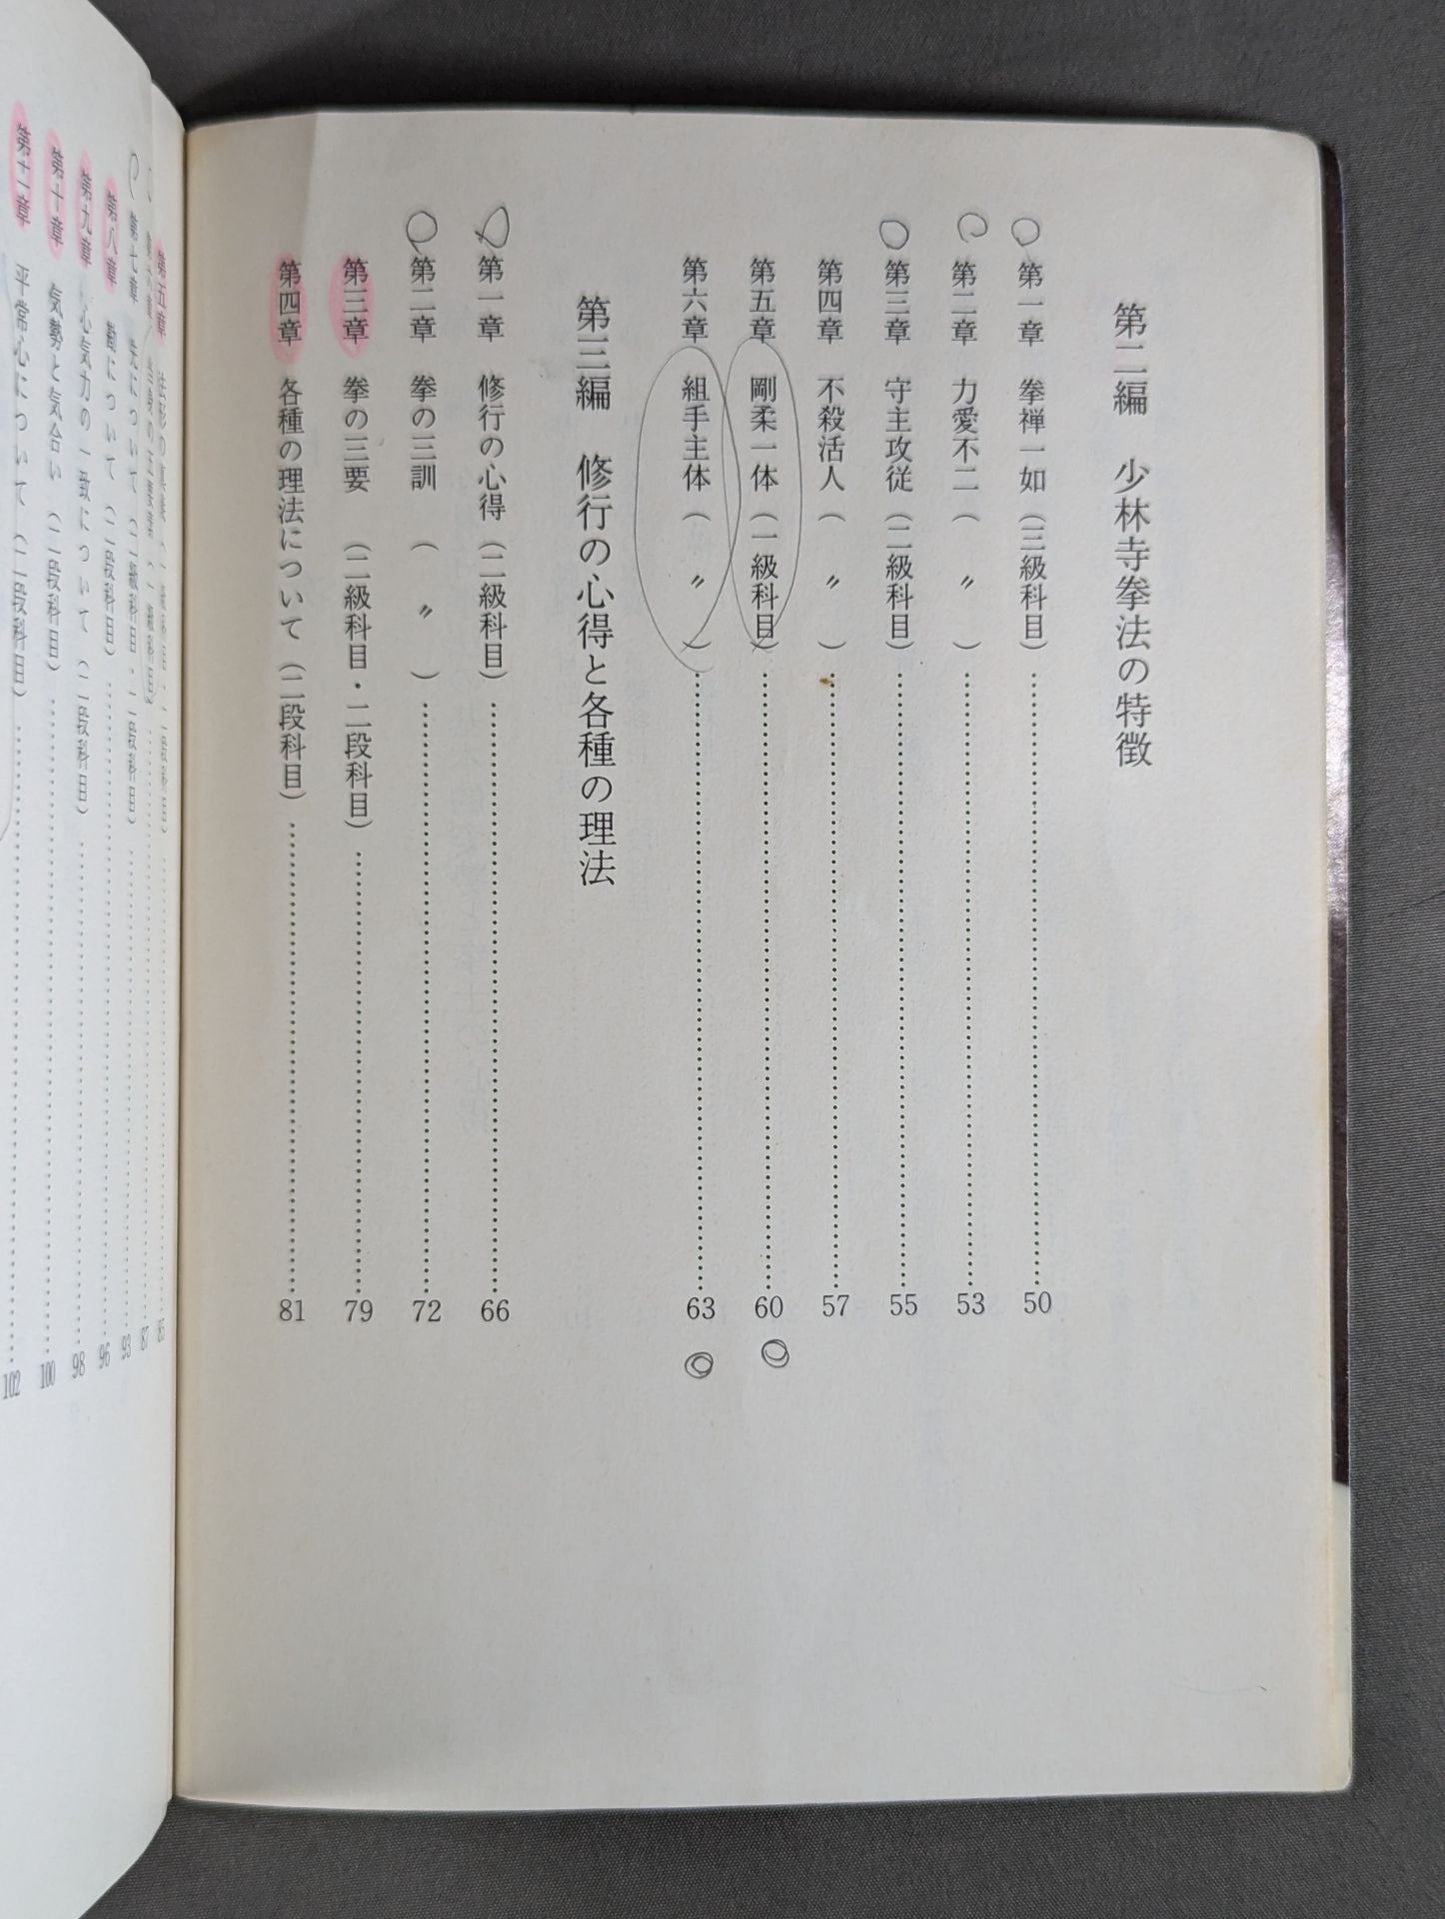 第二編　少林寺拳法の特徴
第一章　拳禅一如（三級科目）……50
第二章　力愛不二（　〃　）……53
第三章　守主攻従（二級科目）……55
第四章　不殺活人（　〃　）……57
第五章　剛柔一体（一級科目）……60
第六章　組手主体（　〃　）……63
第三編　修行の心得と各種の理法
第一章　修行の心得（二級科目）……66
第二章　拳の三訓（　〃　）……72
第三章　拳の三要（二級科目・二段科目）……79
第四章　各種の理法について（二段科目）……81
第五章　法形の　85
87
第七章　先について（二級科目・二段科目）……93
第八章　勘について（二段科目）……96
第九章　心気力の一致について（二段科目）……98
第十章　気勢と気合い（二段科目）……100
第十一章　平常心について（二段科目）……102